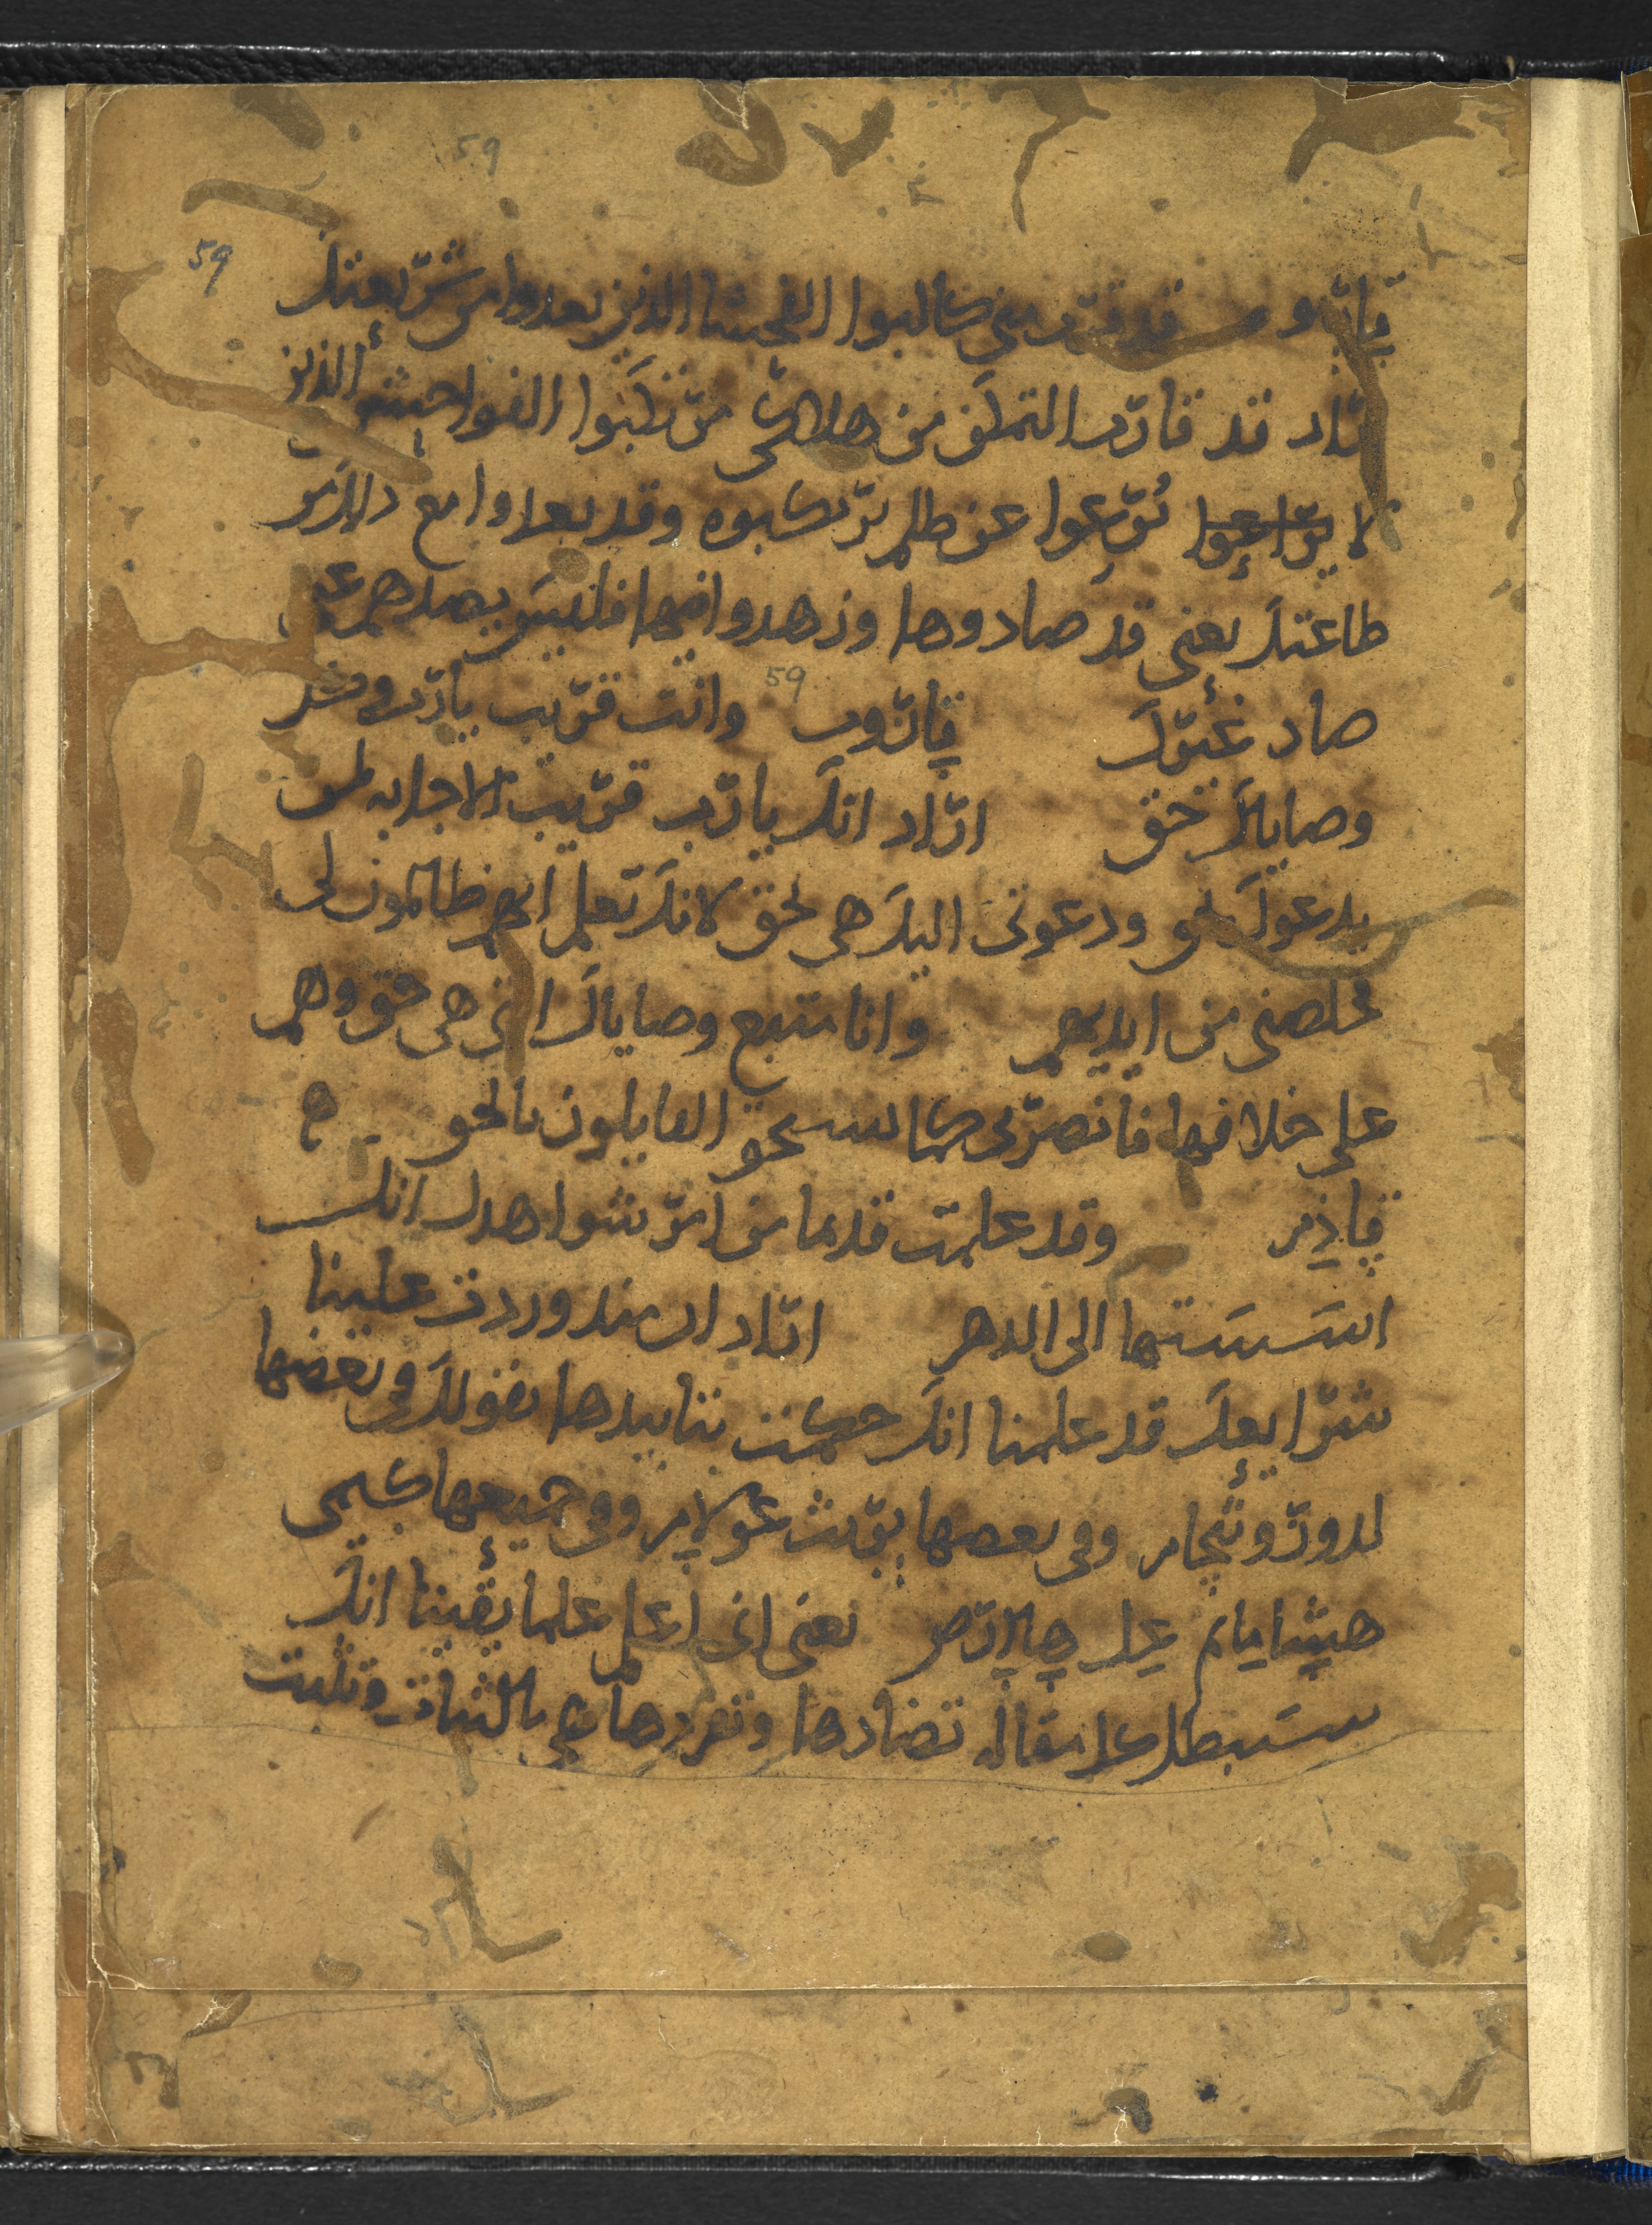 59
59
قاربو قد قرب مني طالبوا الفحشا الذين بعدوا من شريعتك
اراد قد قارب التمكن من هلاكي مرتكبوا الفواحش الذين
لا يراعوا يرعوا عن ظلم يرتكبوه وقد بعدوا مع ذلك من
طاعتك يعني قد صادوها وزهدوا فيها فليس يصدهم عن
59
صاد غيرك قاروب وانت قريب يارب وكل
وصاياك حق اراد انك يارب قريب الاجابه لمن
يدعوك بحق ودعوتي اليك هي بحق لانك تعلم انهم ظالمون لي
فخلصني من ايديهم وانا متبع وصاياك التي هي حق وهم
على خلافها فانصرني كما يستحق القايلون بالحق ه
قاذم وقد علمت قدما من امر شواهدك انك
اسستها الى الدهر اراد ان منذ وردت علينا
شرايعك قد علمنا انك حكمت بتابيدها بقولك في بعضها
لدوروثيخام وفي بعضها بريث عولام وفي جميعها كيمي
هشامايم عل هاارص يعني اني اعلم علما يقينا انك
ستبطل كل مقاله تضادها وتفردها هي بالثبات وتثبت